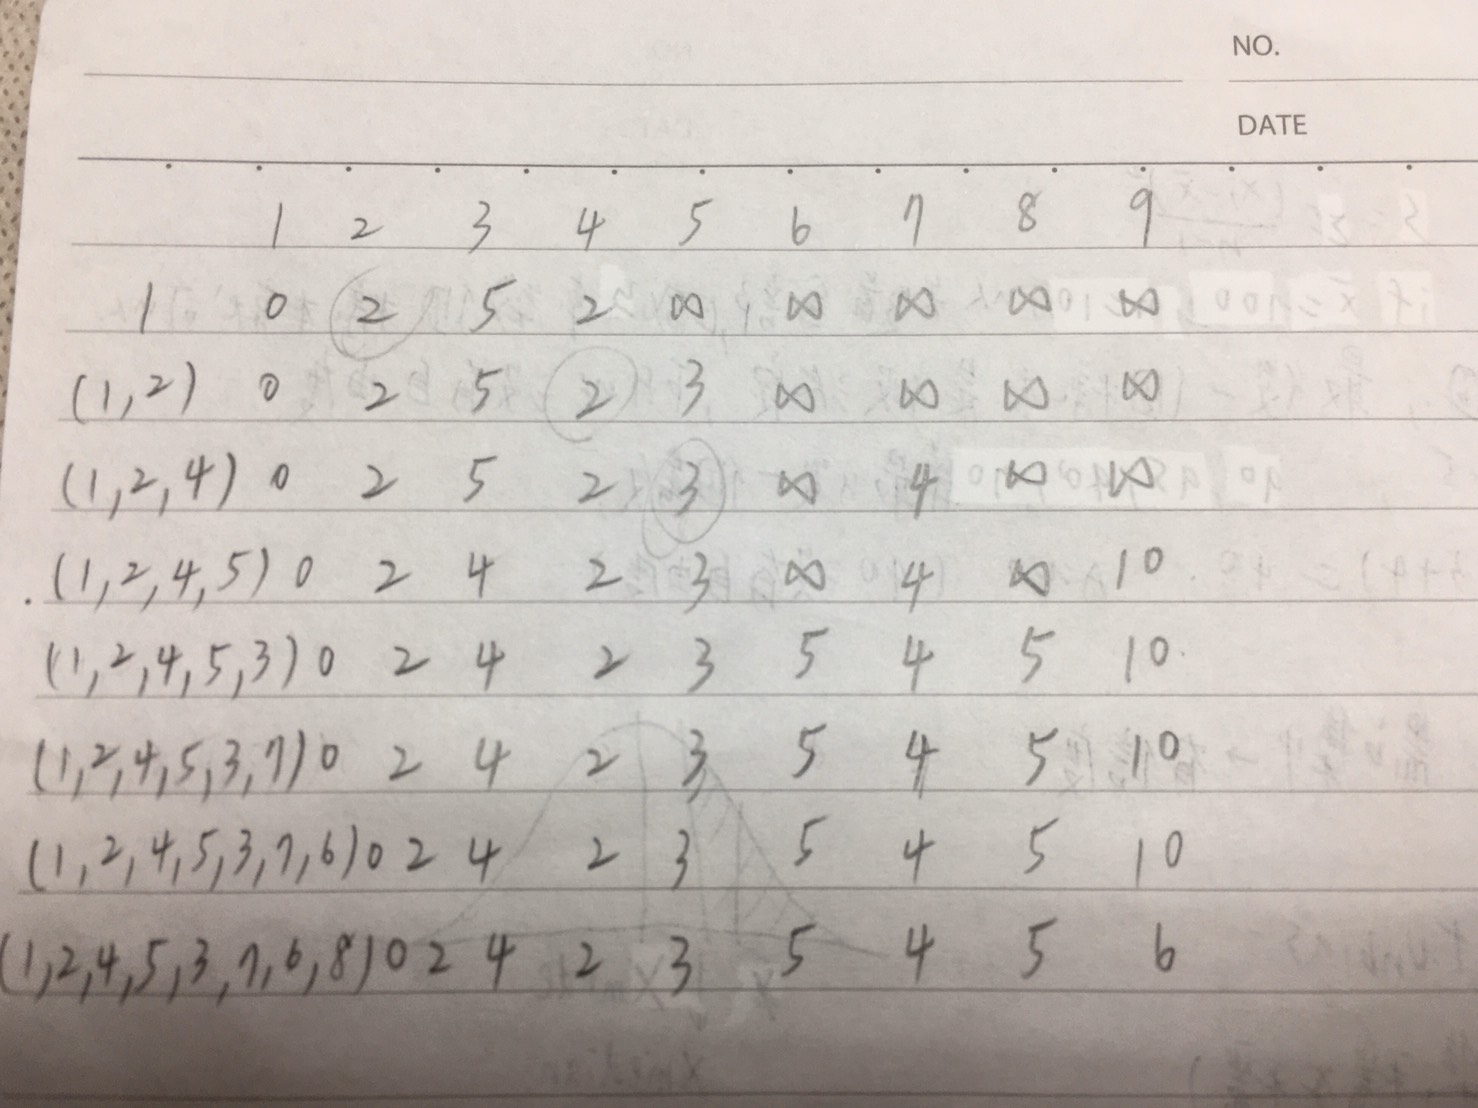 NO.
DATE
1 2 3 4 5 6 7 8 9
1 0 2 5 2 ∞ ∞ ∞ ∞ ∞
(1,2) 0 2 5 2 3 ∞ ∞ ∞ ∞
(1,2,4) 0 2 5 2 3 ∞ 4 ∞ ∞
(1,2,4,5) 0 2 4 2 3 ∞ 4 ∞ 10
(1,2,4,5,3) 0 2 4 2 3 5 4 5 10
(1,2,4,5,3,7) 0 2 4 2 3 5 4 5 10
(1,2,4,5,3,7,6) 0 2 4 2 3 5 4 5 10
(1,2,4,5,3,7,6,8) 0 2 4 2 3 5 4 5 6